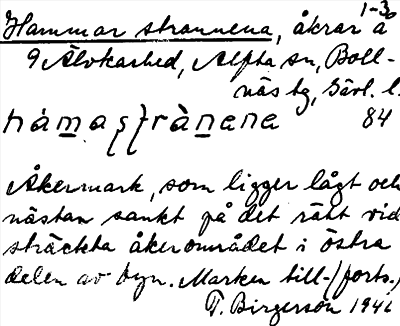 1-3
Hammarstrannena, åkrar å
9 Älvkarhed, Alfta sn, Boll-
näs tg, Gävl. l.
84
Åkermark, som ligger lågt och
nästan sankt på det rätt vid
sträckta åkerområdet i östra
delen av byn. Marken till- (forts.)
T. Birgerson 1946